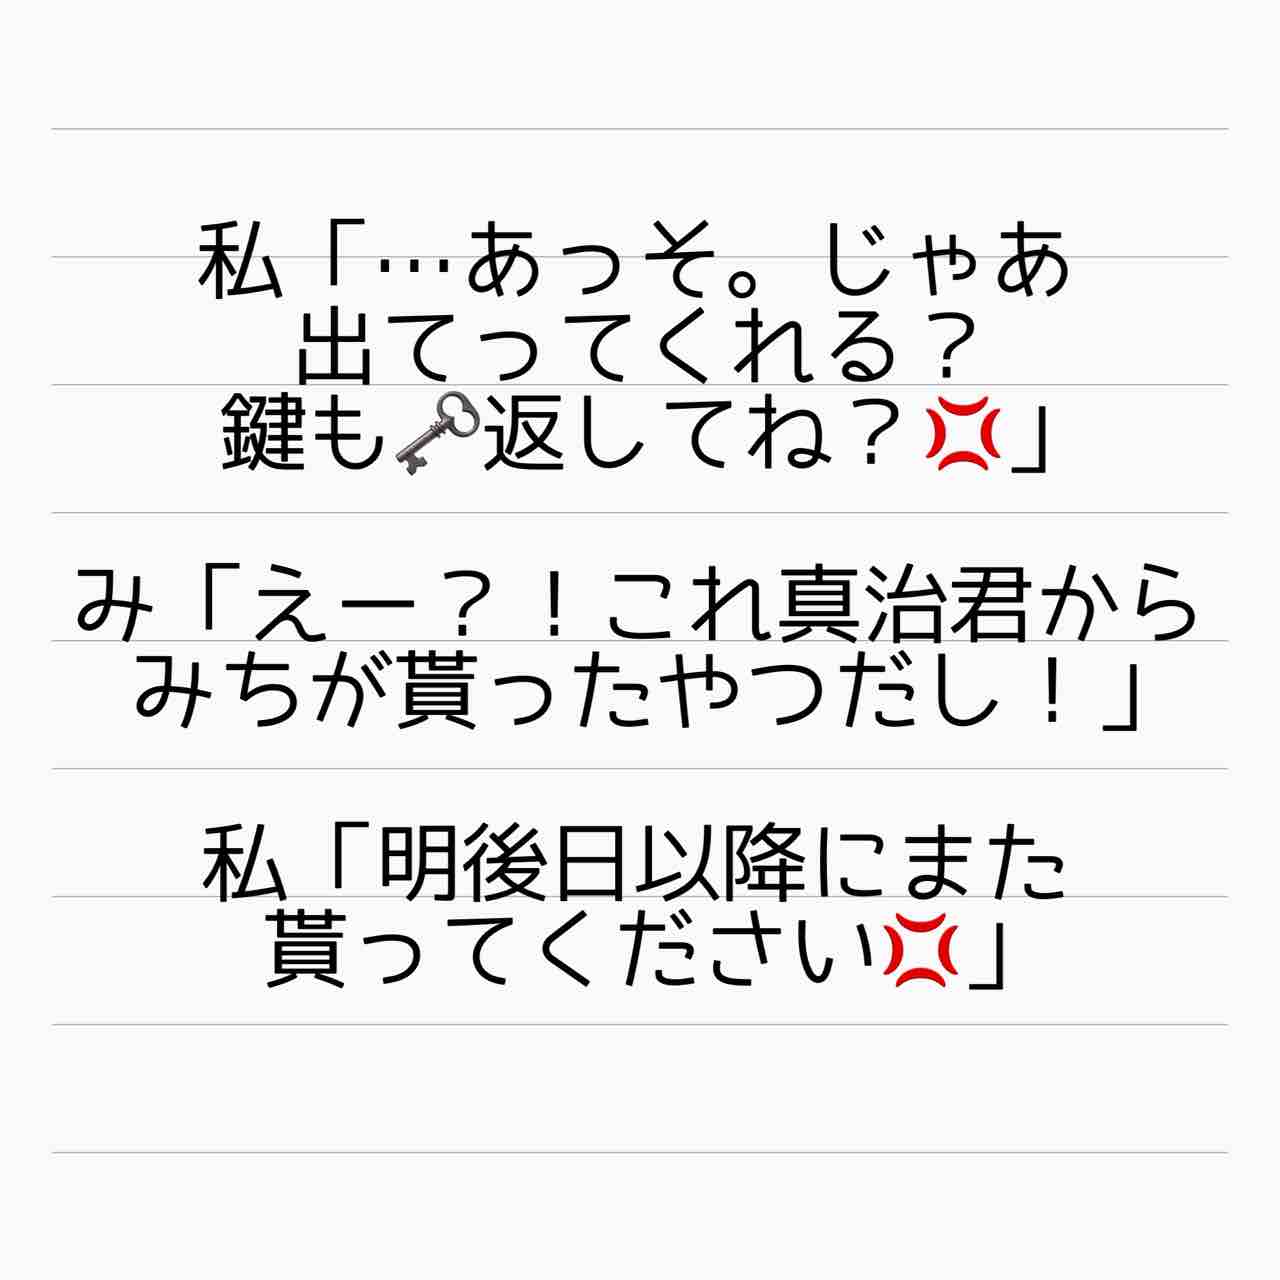 私「…あっそ。じゃあ
出てってくれる？
鍵も🗝返してね？💢」
み「えー？！これ真治君から
みちが貰ったやつだし！」
私「明後日以降にまた
貰ってください💢」